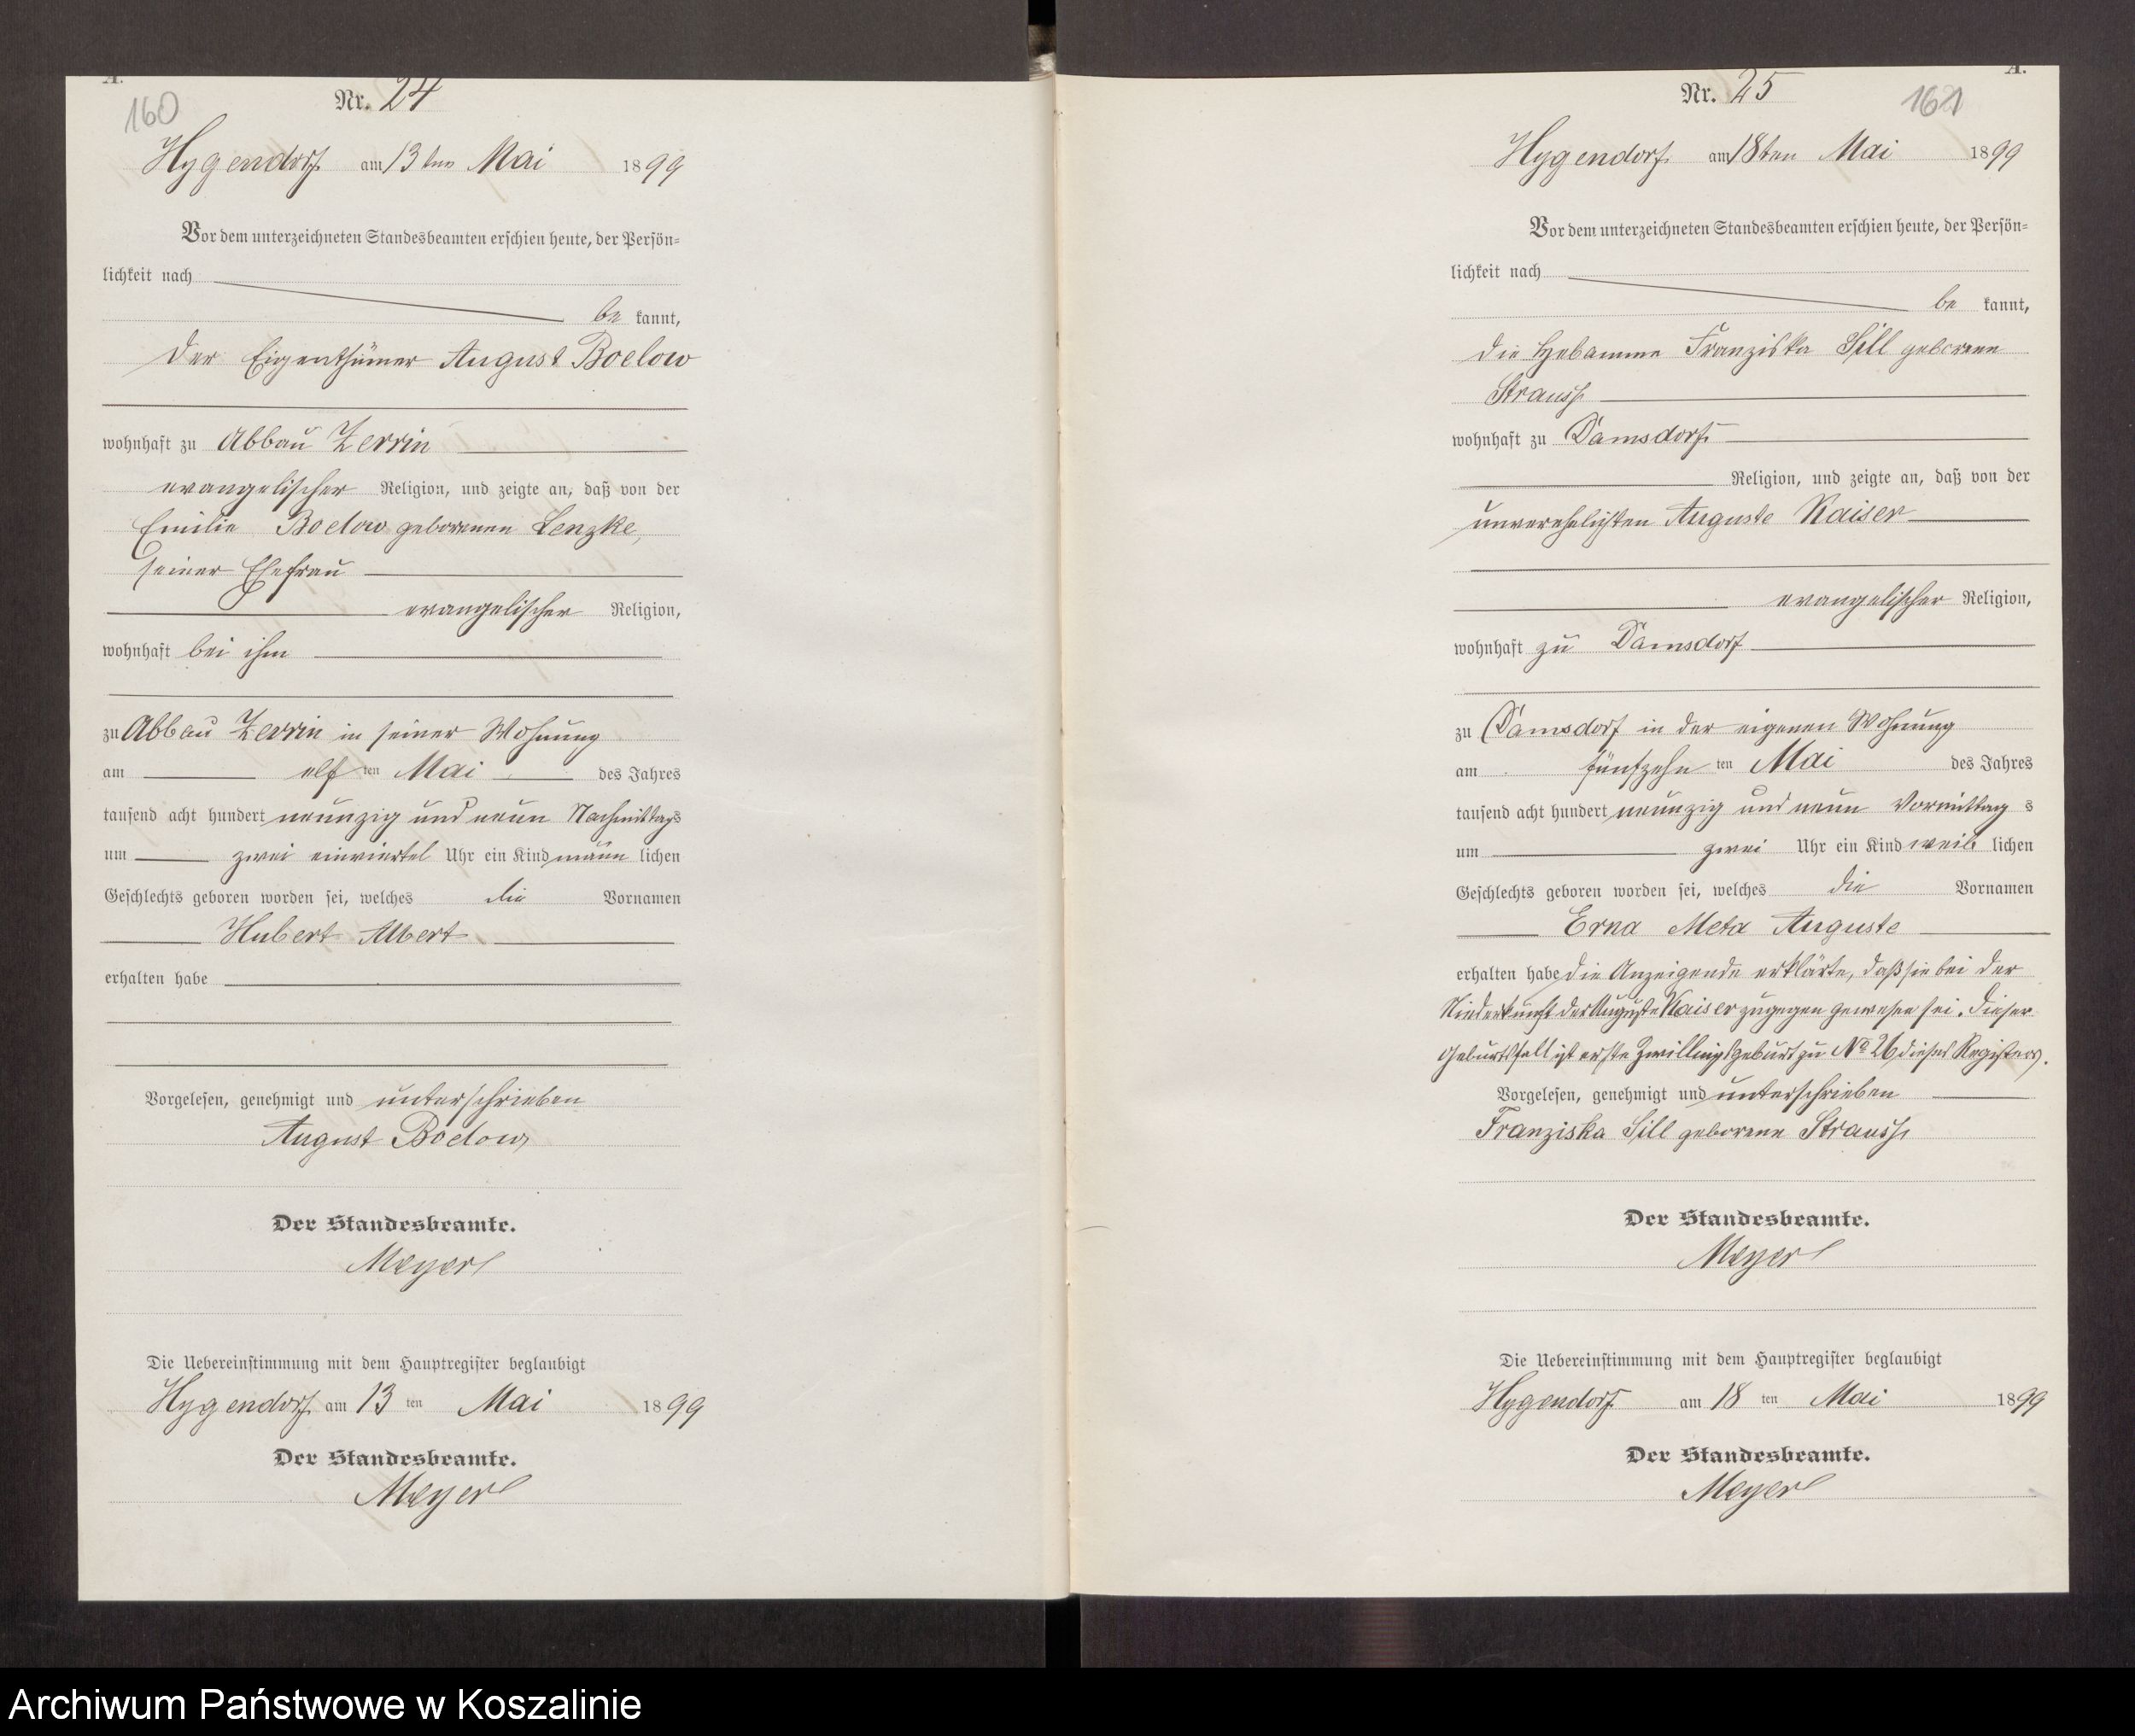 A.
160
Nr. 24
Hygendorf am 13ten Mai 1899
Vor dem unterzeichneten Standesbeamten erschien heute, der Persön=
lichkeit nach
be kannt,
der Eigenthümer August Boelow
wohnhaft zu Abbau Zerrin
evangelischer Religion, und zeigte an, daß von der
Emilie Boelow geborenen Lenzke,
seiner Ehefrau
evangelischer Religion,
wohnhaft bei ihm
zu Abbau Zerrin in seiner Wohnung
am elf ten Mai des Jahres
tausend acht hundert neunzig und neun Nachmittags
um zwei einviertel Uhr ein Kind männ lichen
Geschlechts geboren worden sei, welches die Vornamen
Hubert Albert
erhalten habe
Vorgelesen, genehmigt und unterschrieben
August Boelow
Der Standesbeamte.
Meyer
Die Uebereinstimmung mit dem Hauptregister beglaubigt
Hygendorf am 13 ten Mai 1899
Der Standesbeamte.
Meyer
A.
Nr. 25
161
Hygendorf am 18ten Mai 1899
Vor dem unterzeichneten Standesbeamten erschien heute, der Persön=
lichkeit nach
be kannt,
die Hebamme Franziska Sill geborene
Strauss
wohnhaft zu Damsdorf
Religion, und zeigte an, daß von der
unverehelichten Auguste Kaiser
evangelischer Religion,
wohnhaft zu Damsdorf
zu Damsdorf in der eigenen Wohnung
am fünfzehn ten Mai des Jahres
tausend acht hundert neunzig und neun Vormittag s
um zwei Uhr ein Kind weib lichen
Geschlechts geboren worden sei, welches die Vornamen
Erna Meta Auguste
erhalten habe die Anzeigende erklärte, daß sie bei der
Niederkunft der Auguste Kaiser zugegen gewesen sei. Dieser
Geburtsfall ist erste Zwillingsgeburt zu No 26 dieses Registers.
Vorgelesen, genehmigt und unterschrieben
Franziska Sill geborene Strauss
Der Standesbeamte.
Meyer
Die Uebereinstimmung mit dem Hauptregister beglaubigt
Hygendorf am 18 ten Mai 1899
Der Standesbeamte.
Meyer
Archiwum Państwowe w Koszalinie